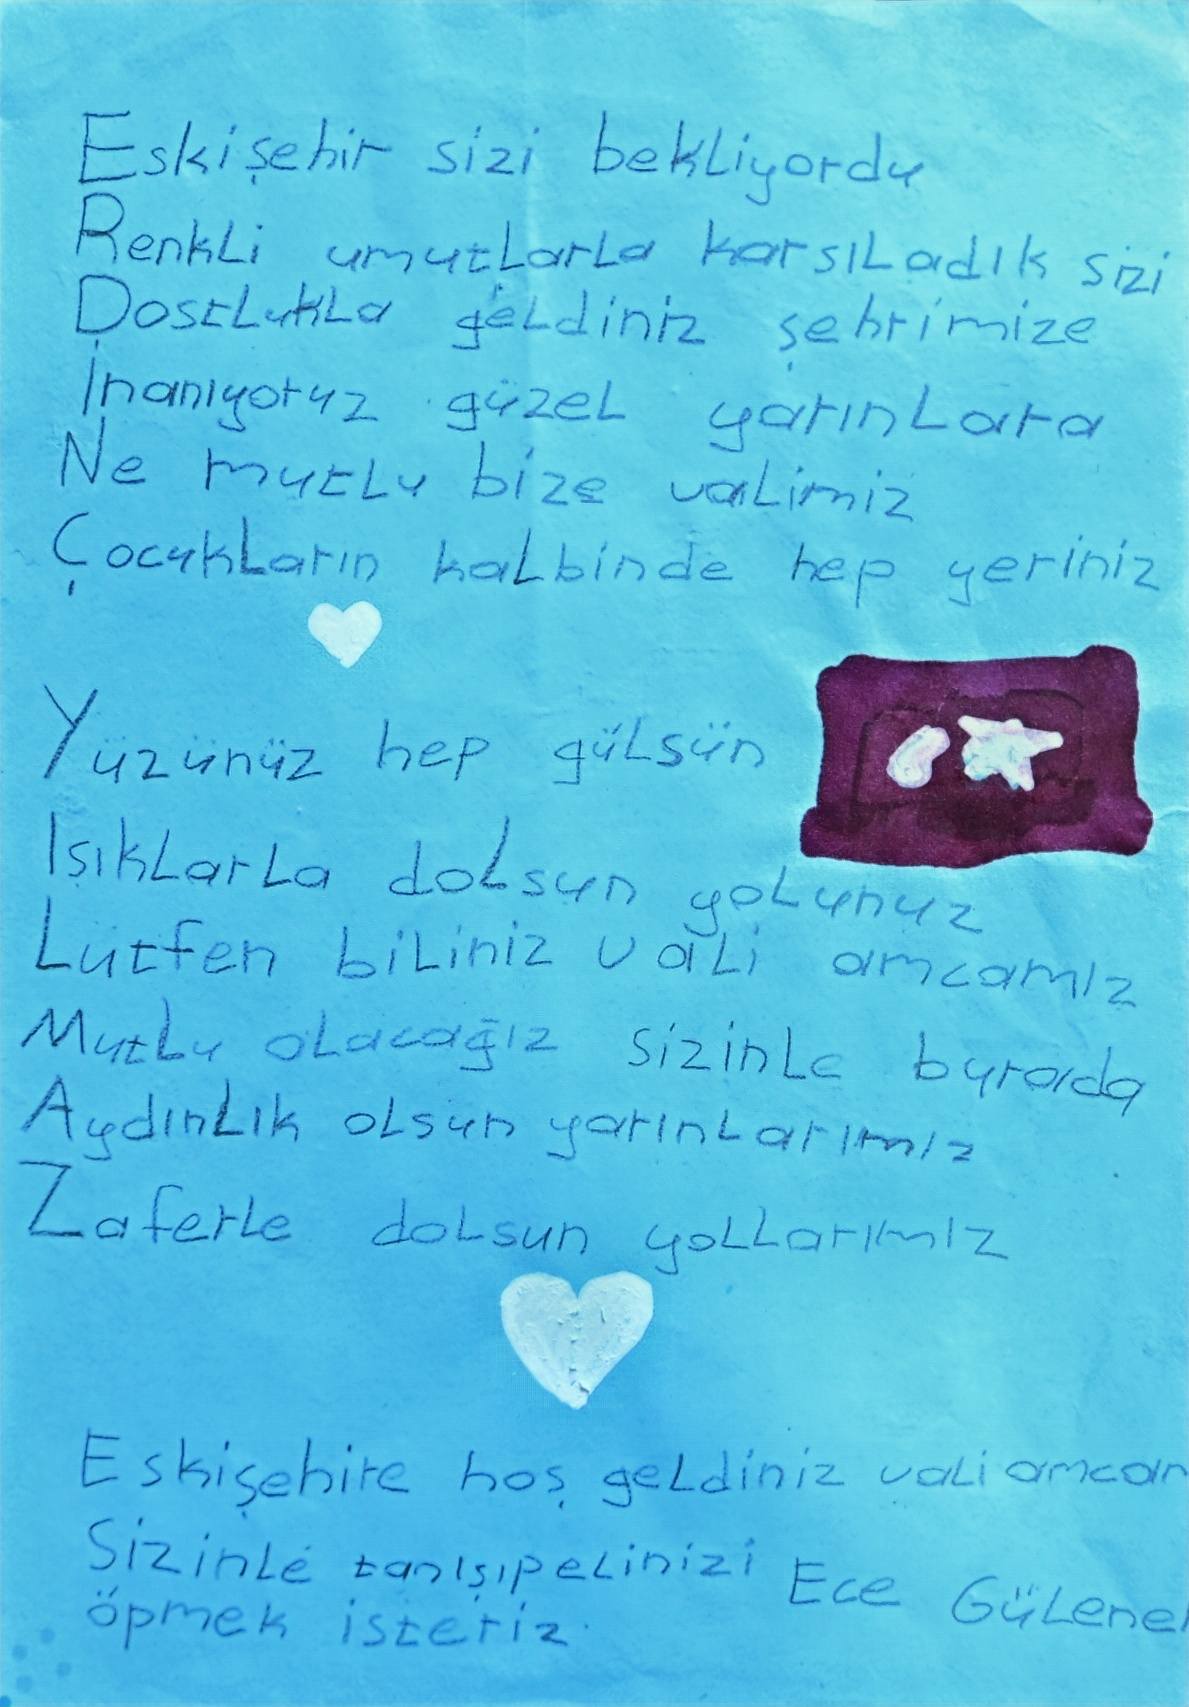 Eskişehir sizi bekliyordu
Renkli umutlarla karsıladık sizi
Dostlukla geldiniz şehrimize
İnanıyoruz güzel yarınlara
Ne mutlu bize valimiz
Çocukların kalbinde hep yeriniz
Yüzünüz hep gülsün
Işıklarla dolsun yolunuz
Lütfen biliniz vali amcamız
Mutlu olacağız sizinle burada
Aydınlık olsun yarınlarımız
Zaferle dolsun yollarımız
Eskişehire hoş geldiniz vali
Sizinle tanışıp elinizi Ece
öpmek isteriz.